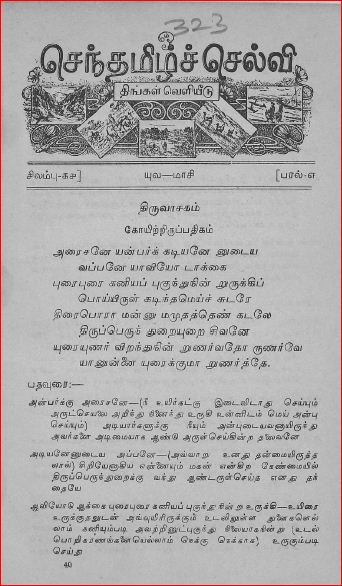 323
செந்தமிழ்ச்செல்வி
திங்கள் வெளியீடு
சிலம்பு-கச] யுவ—மாசி [பரல்-எ
திருவாசகம்
கோயிற்றிருப்பதிகம்
அரைசனே யன்பர்க் கடியனே னுடைய
வப்பனே யாவியோ டாக்கை
புரைபுரை கனியப் புகுந்துநின் றுருக்கிப்
பொய்யிருள் கடிந்தமெய்ச் சுடரே
திரைபொரா மன்னு மமுதத்தெண் கடலே
திருப்பெருந் துறையுறை சிவனே
யுரையுணர் விறந்துநின் றுணர்வதோ ருணர்வே
யானுன்னை யுரைக்குமா றுணர்த்தே.
பதவுரை:—
அன்பர்க்கு அரைசனே—(நீ உயிர்கட்கு இடைவிடாது செய்யும்
அருட்செயலை அறிந்து நினைந்து உருகி உன்னிடம் மெய் அன்பு
செய்யும்) அடியார்களுக்கு நீயும் அன்புடையவனாயிருந்து
அவர்களை அடிமையாக ஆண்டு அருள்செய்கின்ற தலைவனே
அடியனேனுடைய அப்பனே—(அவ்வாறு உனது தன்மையிருத்த
லால்) சிறியேனாகிய என்னையும் மகன் என்கிற கேண்மையில்
திருப்பெருந்துறைக்கு வந்து ஆண்டருள்செய்த எனது தந்
தையே
ஆவியோடு ஆக்கை புரைபுரை கனியப் புகுந்து நின்று உருக்கி—உயிரை
உருக்குதலுடன் அவ்வுயிரிருக்கும் உடலிலுள்ள துளைகளெல்
லாம் கனியும்படி அவற்றினுட்புகுந்து நிலையாகநின்று (உடல்
பொதிகரணங்களையெல்லாம் நெக்கு நெக்காக) உருகும்படி
செய்து
40